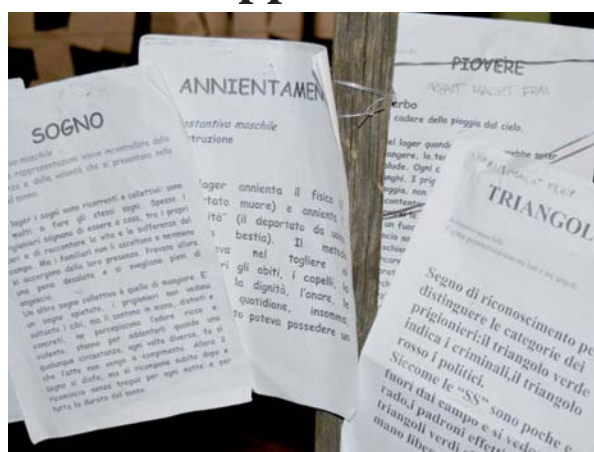 SOGNO
vo maschile
rappresentazioni visive incontrollate dalla
e dalla volontà che si presentano nella
del sonno
lager i sogni sono ricorrenti e collettivi: sono
molti a fare gli stessi sogni. Spesso i
prigionieri sognano di essere a casa, tra i propri
cari e di raccontare la vita e le sofferenze del
campo. Ma i familiari non li ascoltano e nemmeno
si accorgono della loro presenza. Provano allora
una pena desolata e si svegliano pieni di
angoscia.
Un altro sogno collettivo è quello di mangiare. E'
un sogno spietato, i prigionieri non vedono
soltanto i cibi, ma li sentono in mano, distinti e
concreti, ne percepiscono l'odore ricco e
violento, stanno per addentarli quando una
qualunque circostanza, ogni volta diversa, fa sì
che l'atto non venga a compimento. Allora il
sogno si disfa, ma si ricompone subito dopo e
ricomincia senza tregua per ogni notte e per
tutta la durata del sonno.
ANNIENTAMEN
ostantivo maschile
truzione
lager annienta il fisico (il
tato muore) e annienta
ità" (il deportato da uomo
bestia). Il metodo
eva nel togliere
ri gli abiti, i capelli, la
la dignità, l'onore, le
quotidiane, insomma
to poteva possedere un
PIOVERE
erbo
cadere della pioggia dal cielo.
nel lager quando
TRIANGOL
Segno di riconoscimento pe
distinguere le categorie dei
prigionieri:il triangolo verde
indica i criminali,il triangolo
rosso i politici.
Siccome le "SS" sono poche e
fuori dal campo e si vedo
rado,i padroni effetti
triangoli verdi
mano liber